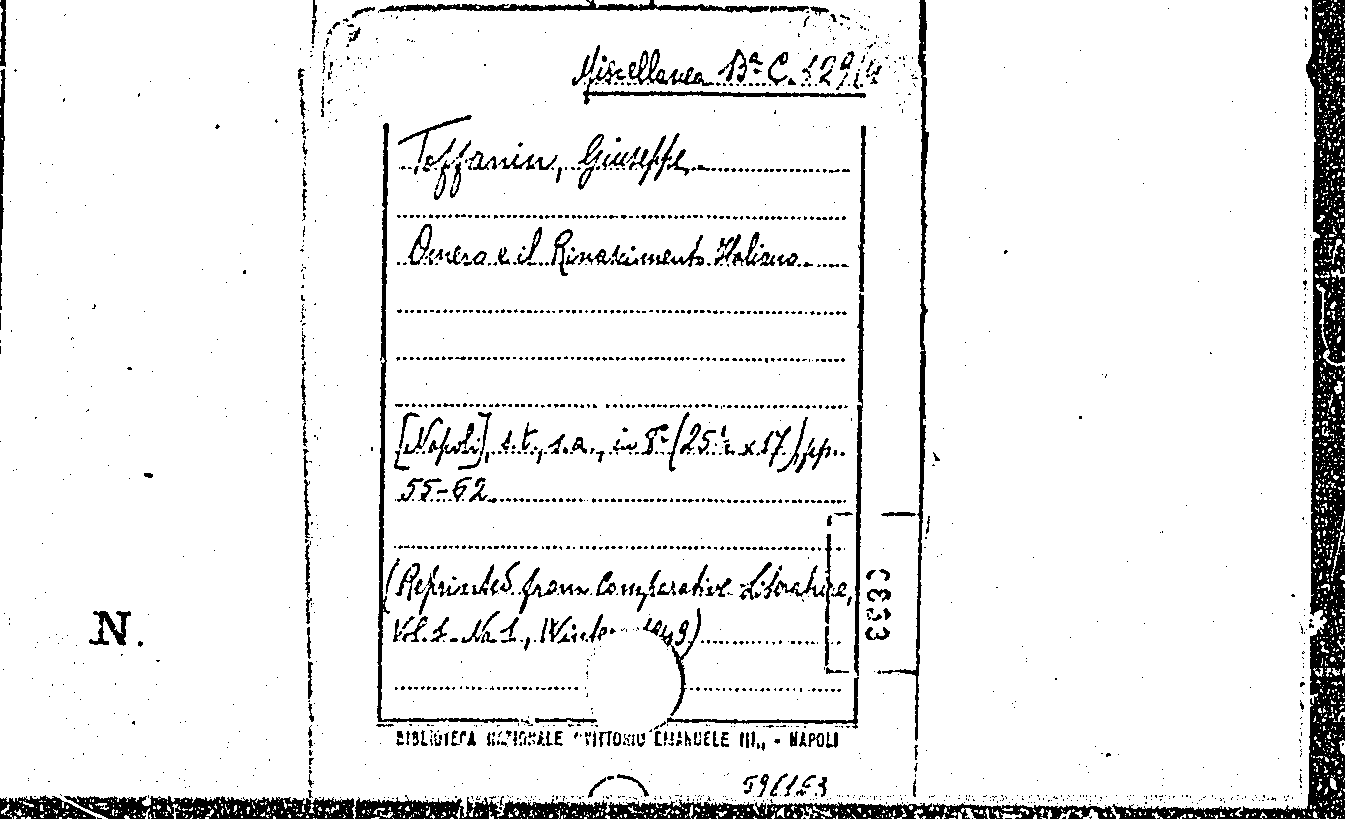 Miscellanea Bª C. 129/4
Toffanin, Giuseppe.
Omero e il Rinascimento Italiano.
[Napoli], s.t., s.a., in 8º (25½ x 17), pp.
55-62.
(Reprinted from Comparative Literature,
Vol. 1. No 1, Winter 1949)
0833
N.
BIBLIOTECA NAZIONALE "VITTORIO EMANUELE III„ - NAPOLI
596163